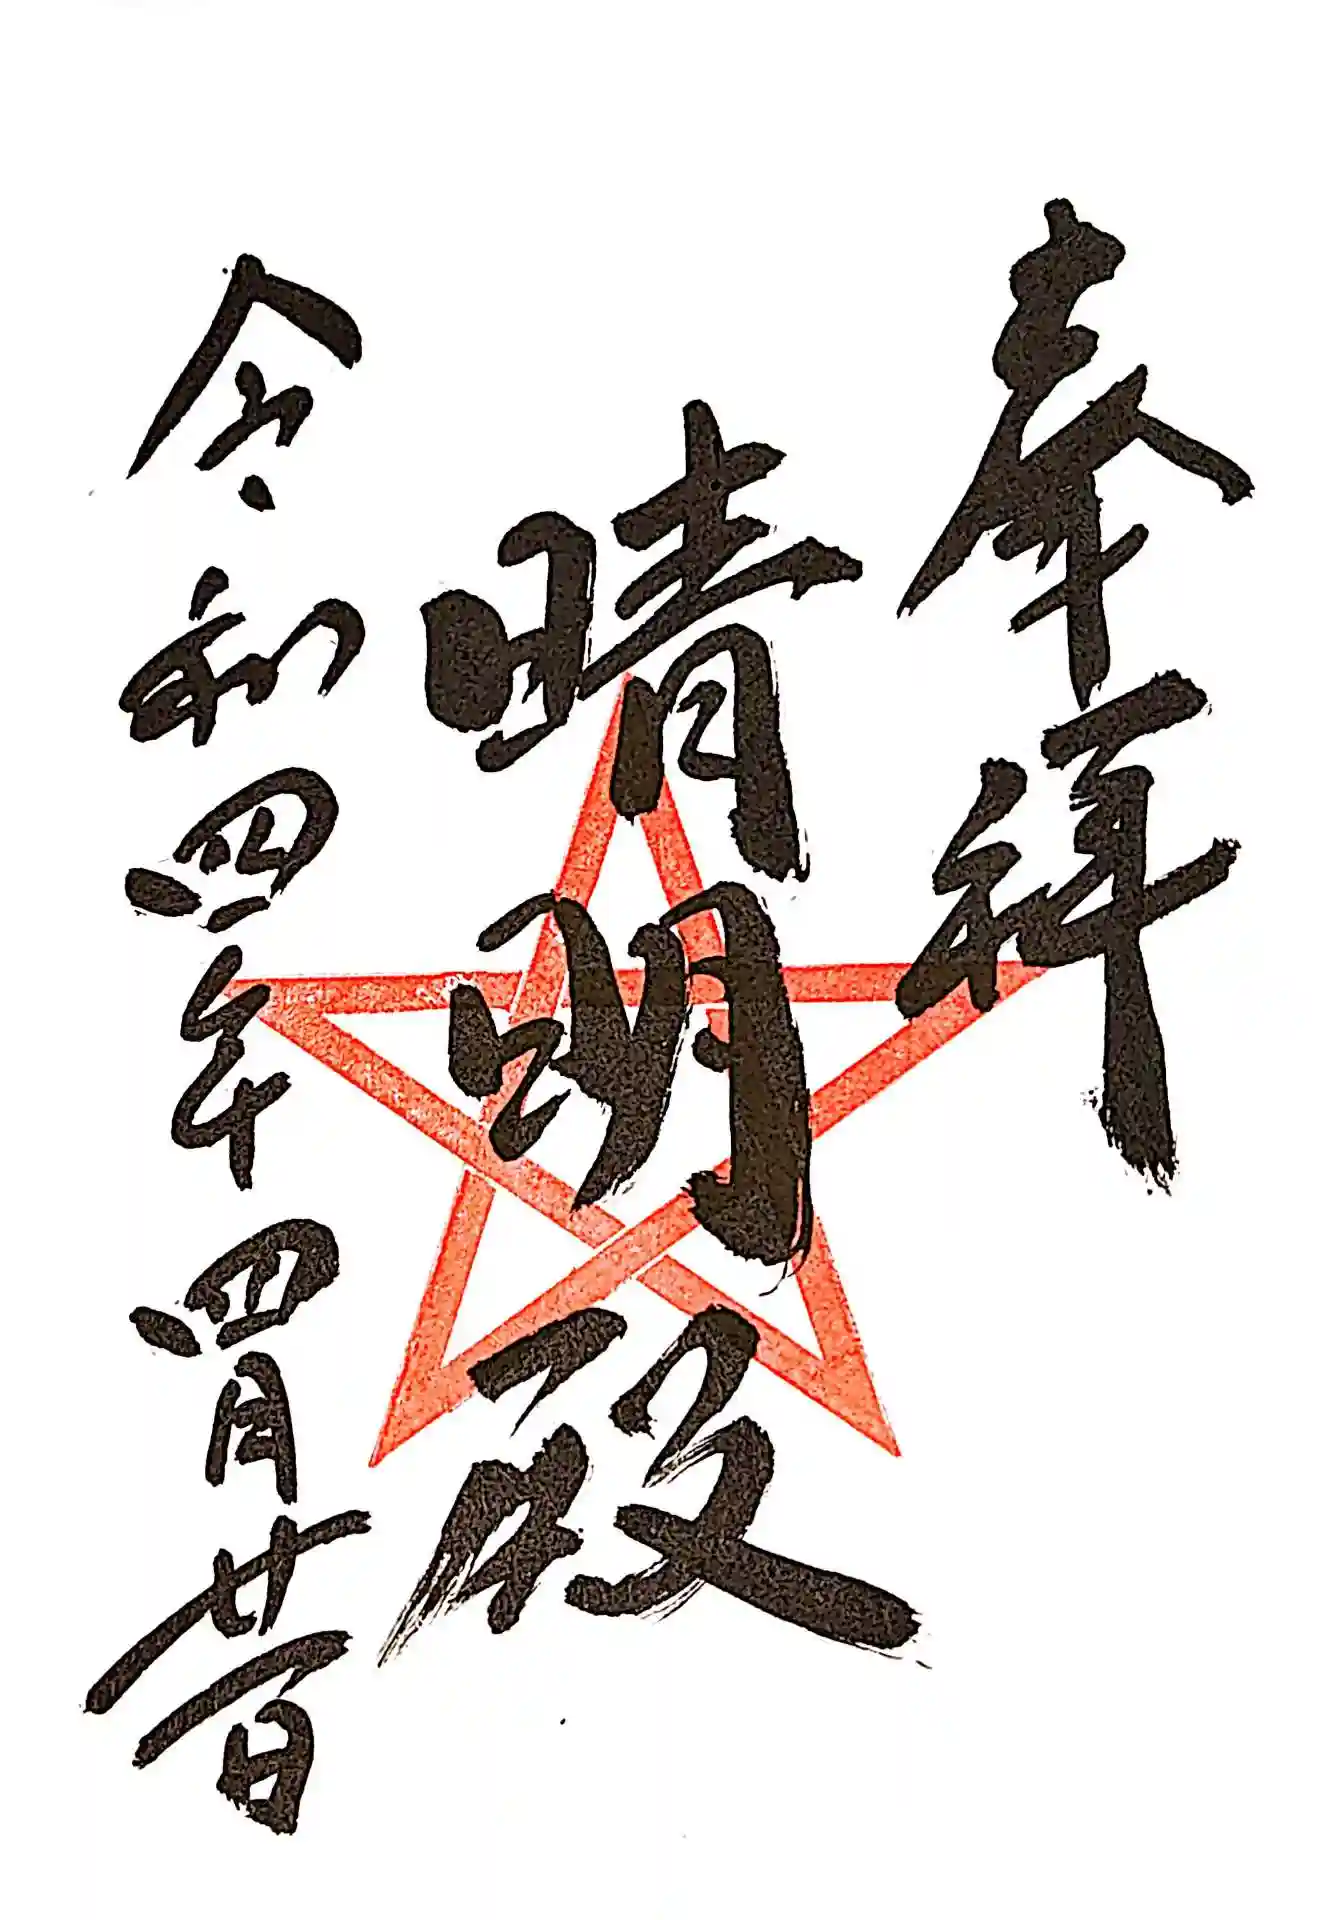 奉拝
晴明殿
令和四年四月廿一日